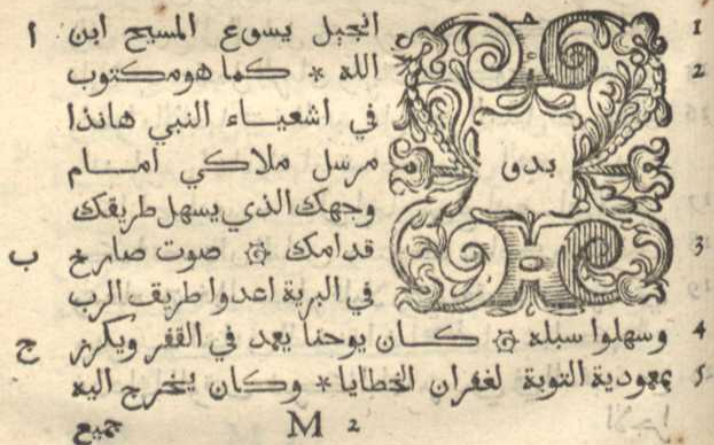 بدو
1 انجيل يسوع المسيح ابن ا
2 الله * كما هو مكتوب
في اشعياء النبي هانذا
مرسل ملاكي امام
وجهك الذي يسهل طريقك
3 قدامك ۞ صوت صارخ ب
في البرية اعدوا طريق الرب
4 وسهلوا سبله ۞ كان يوحنا يعمد في القفر ويكرز ج
5 بمعودية التوبة لغفران الخطايا * وكان يخرج اليه
M 2 جميع